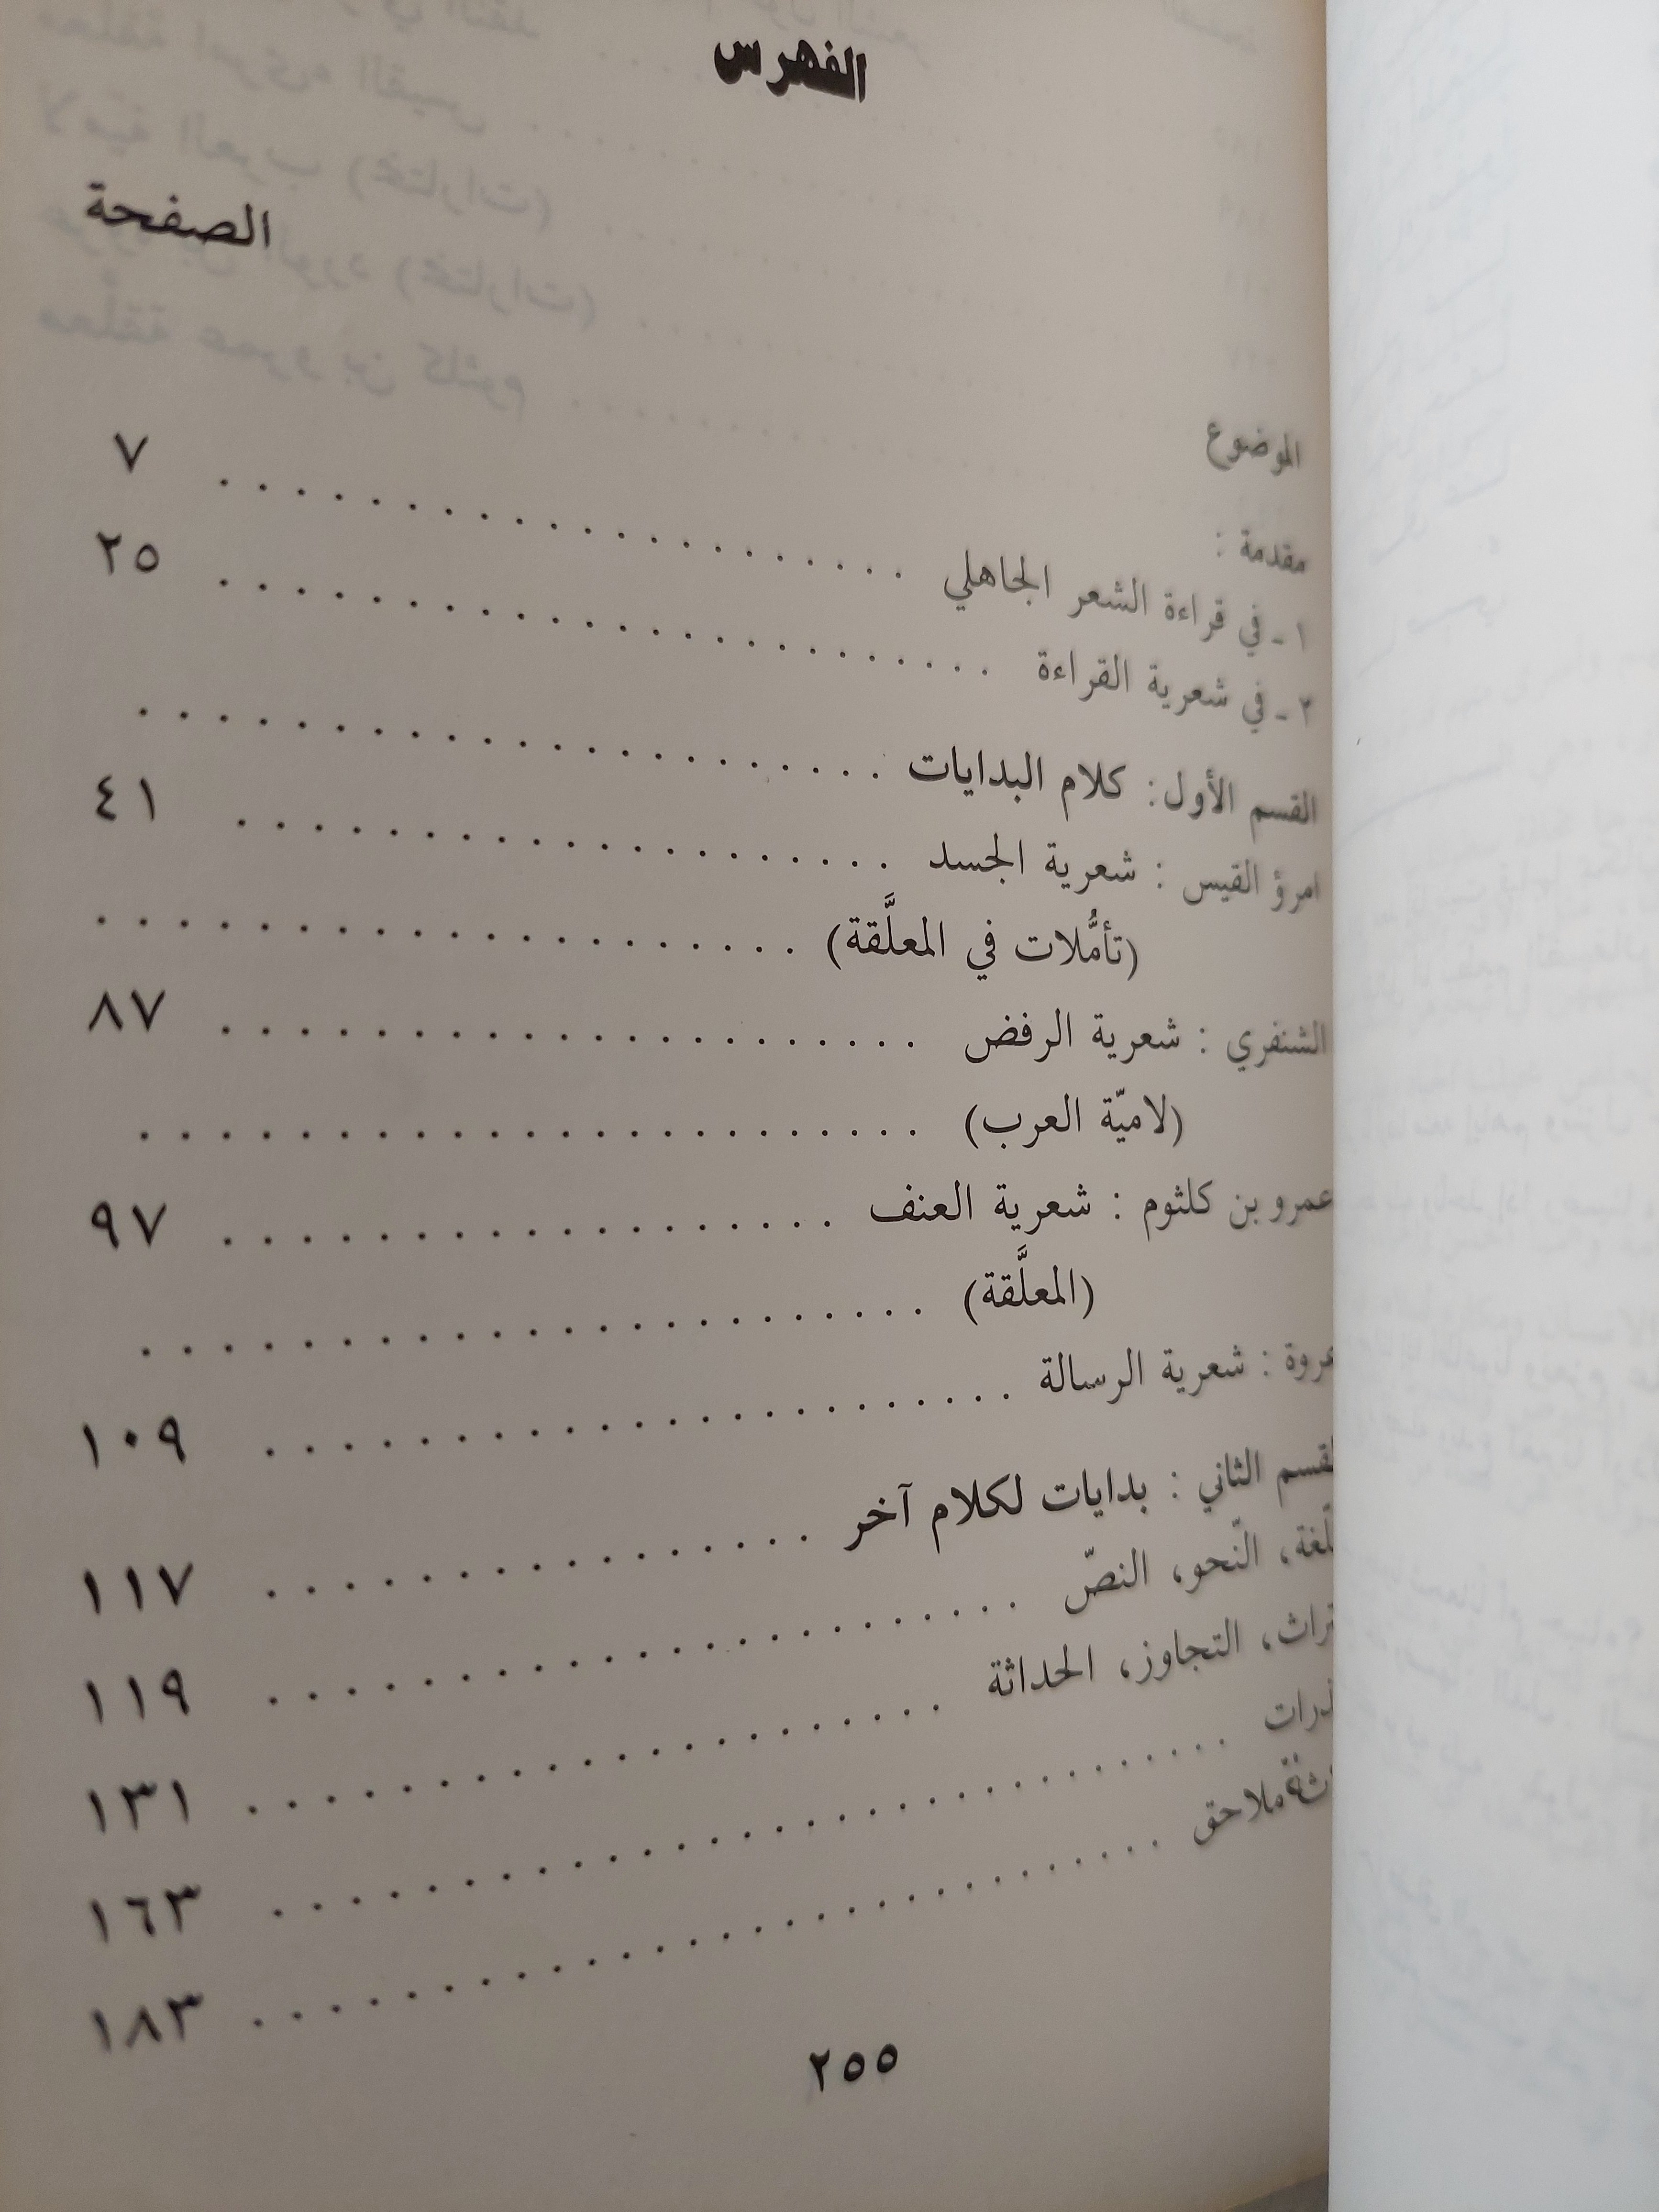 الفهرس
الموضوع الصفحة
مقدمة :
١ - في قراءة الشعر الجاهلي . . . . . . . . . . . . . . . . . . . ٧
٢ - في شعرية القراءة . . . . . . . . . . . . . . . . . . . . ٢٥
القسم الأول: كلام البدايات . . . . . . . . . . . . . . . . . . .
امرؤ القيس : شعرية الجسد . . . . . . . . . . . . . . . . . ٤١
(تأمُّلات في المعلَّقة) . . . . . . . . . . . . . . . . . .
الشنفري : شعرية الرفض . . . . . . . . . . . . . . . . . . ٨٧
(لاميّة العرب) . . . . . . . . . . . . . . . . . . . . .
عمرو بن كلثوم : شعرية العنف . . . . . . . . . . . . . . . . ٩٧
(المعلَّقة) . . . . . . . . . . . . . . . . . . . . .
عروة : شعرية الرسالة . . . . . . . . . . . . . . . . . . . . ١٠٩
القسم الثاني : بدايات لكلام آخر . . . . . . . . . . . . . . ١١٧
النّحو، النصّ . . . . . . . . . . . . . . . . . . . . ١١٩
التجاوز، الحداثة . . . . . . . . . . . . . . . . . . ١٣١
. . . . . . . . . . . . . . . . . . . . . . . . . ١٦٣
ملاحق . . . . . . . . . . . . . . . . . . . . . . . ١٨٣
٢٥٥